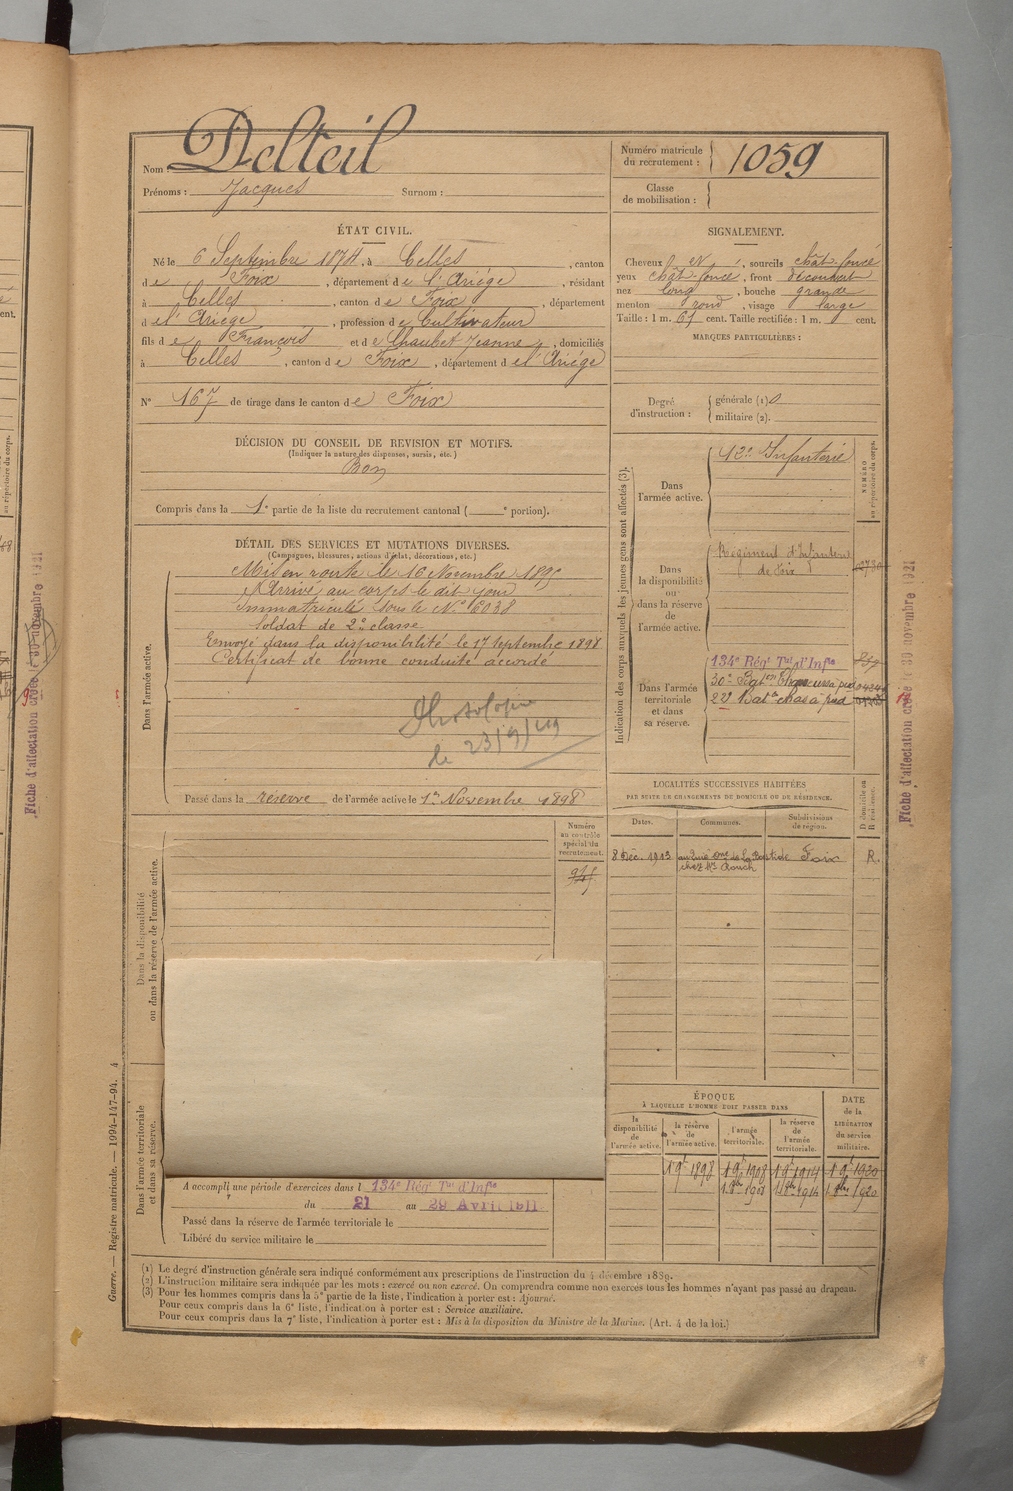 Nom : Delteil
Prénoms : Jacques Surnom :
Numéro matricule du recrutement : 1059
Classe de mobilisation :
ÉTAT CIVIL.
Né le 6 Septembre 1874, à Celles, canton
de Foix, département de l'Ariège, résidant
à Celles, canton de Foix, département
de l'Ariège, profession de Cultivateur
fils de François et de Chaubet Jeanne, domiciliés
à Celles, canton de Foix, département de l'Ariège
N° 167 de tirage dans le canton de Foix
SIGNALEMENT.
Cheveux et, sourcils chât. foncé
yeux chât. foncé, front découvert
nez long, bouche grande
menton rond, visage large
Taille : 1 m. 67 cent. Taille rectifiée : 1 m. cent.
MARQUES PARTICULIÈRES :
Degré d'instruction : générale (1) 0
militaire (2).
DÉCISION DU CONSEIL DE REVISION ET MOTIFS.
(Indiquer la nature des dispenses, sursis, etc.)
Bon
Compris dans la 1e partie de la liste du recrutement cantonal ( e portion).
DÉTAIL DES SERVICES ET MUTATIONS DIVERSES.
(Campagnes, blessures, actions d'éclat, décorations, etc.)
Dans l'armée active.
Mis en route le 16 Novembre 1895
Arrivé au corps le dit jour
Immatriculé sous le N° 6038
Soldat de 2e classe
Envoyé dans la disponibilité le 17 Septembre 1898
Certificat de bonne conduite accordé
le 23/9/49
Passé dans la réserve de l'armée active le 1er Novembre 1898
Indication des corps auxquels les jeunes gens sont affectés (3).
NUMÉRO au répertoire du corps.
Dans l'armée active.
Infanterie
Dans la disponibilité ou dans la réserve de l'armée active.
Régiment d'Infanterie
de Foix
Dans l'armée territoriale et dans sa réserve.
134e Régt Tal d'Infie
30e Bat on Chasseurs à pied
22 Bat on chas à pied
Fiche d'affectation créée le 30 novembre 1921
LOCALITÉS SUCCESSIVES HABITÉES
PAR SUITE DE CHANGEMENTS DE DOMICILE OU DE RÉSIDENCE.
Dates. Communes. Subdivisions de région. D domicile ou R résidence.
8 Déc. 1913 Foix R.
Numéro au contrôle spécial du recrutement.
Dans la disponibilité ou dans la réserve de l'armée active.
Dans l'armée territoriale et dans sa réserve.
A accompli une période d'exercices dans l 134e Régt Tal d'Infie
du 21 au 29 Avril 1911
Passé dans la réserve de l'armée territoriale le
Libéré du service militaire le
ÉPOQUE
À LAQUELLE L'HOMME DOIT PASSER DANS
la disponibilité de l'armée active.
la réserve de l'armée active.
l'armée territoriale.
la réserve de l'armée territoriale.
DATE de la LIBÉRATION du service militaire.
1 9bre 1898 1 9bre 1908 1 9bre 1914 1 9bre 1920
(1) Le degré d'instruction générale sera indiqué conformément aux prescriptions de l'instruction du 4 décembre 1889.
(2) L'instruction militaire sera indiquée par les mots : exercé ou non exercé. On comprendra comme non exercés tous les hommes n'ayant pas passé au drapeau.
(3) Pour les hommes compris dans la 5e partie de la liste, l'indication à porter est : Ajourné.
Pour ceux compris dans la 6e liste, l'indication à porter est : Service auxiliaire.
Pour ceux compris dans la 7e liste, l'indication à porter est : Mis à la disposition du Ministre de la Marine. (Art. 4 de la loi.)
Guerre. — Registre matricule. — 1994-147-94. 4
Fiche d'affectation créée le 30 novembre 1921